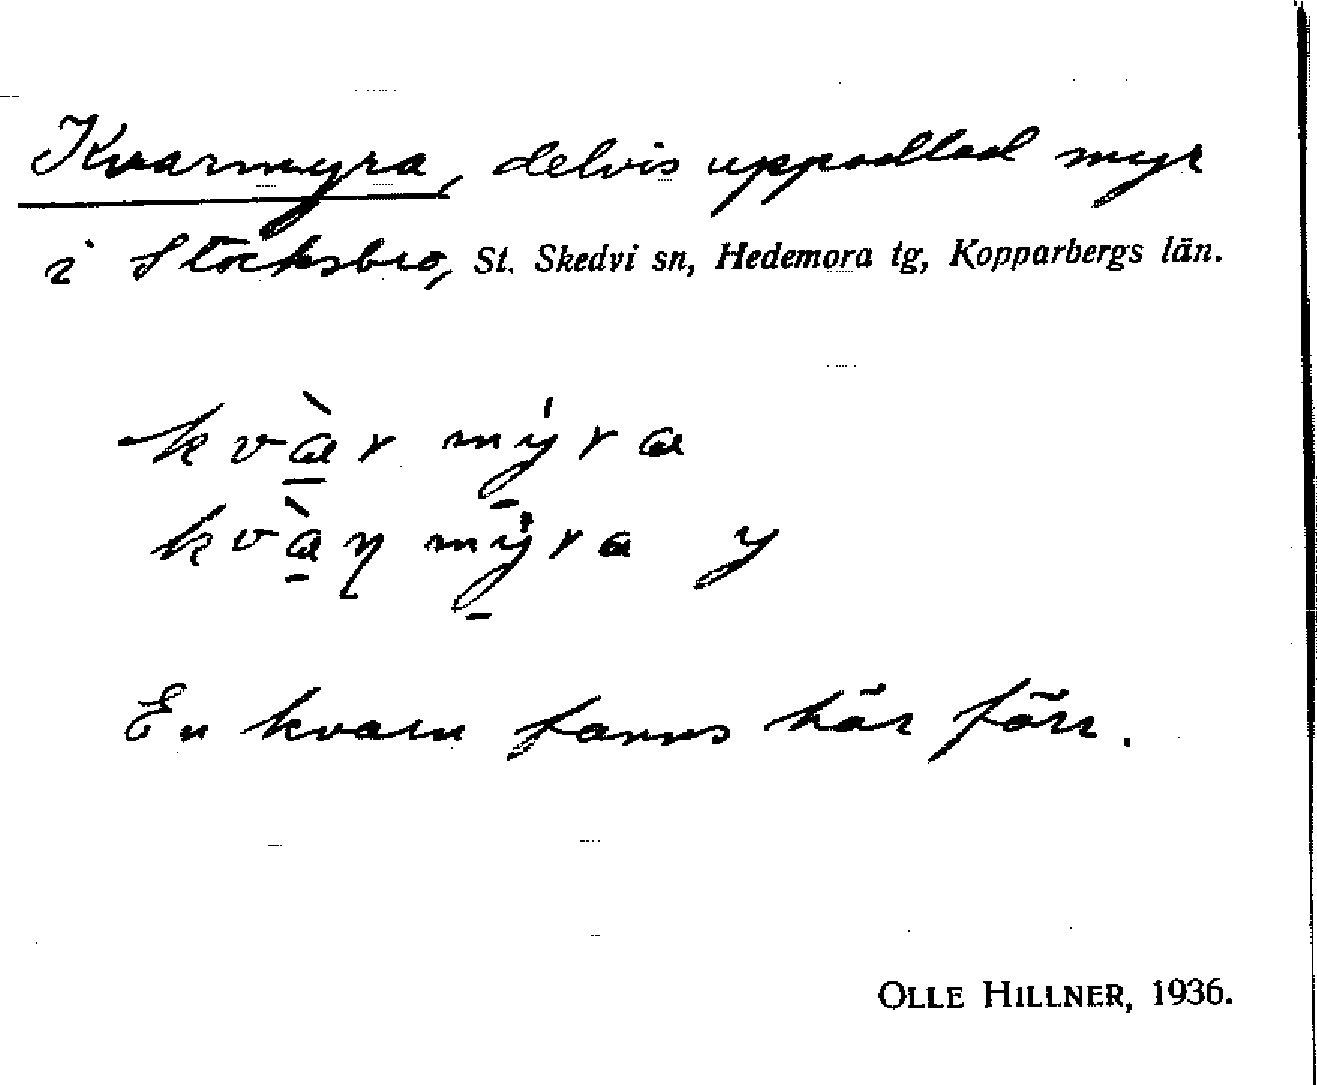 Kvarnmyra, delvis uppodlad myr
i Stocksbro, St. Skedvi sn, Hedemora tg, Kopparbergs län.
kvà̱r mý̱ra
kvà̱ɳ mý̱ra y
En kvarn fanns här förr.
OLLE HILLNER, 1936.